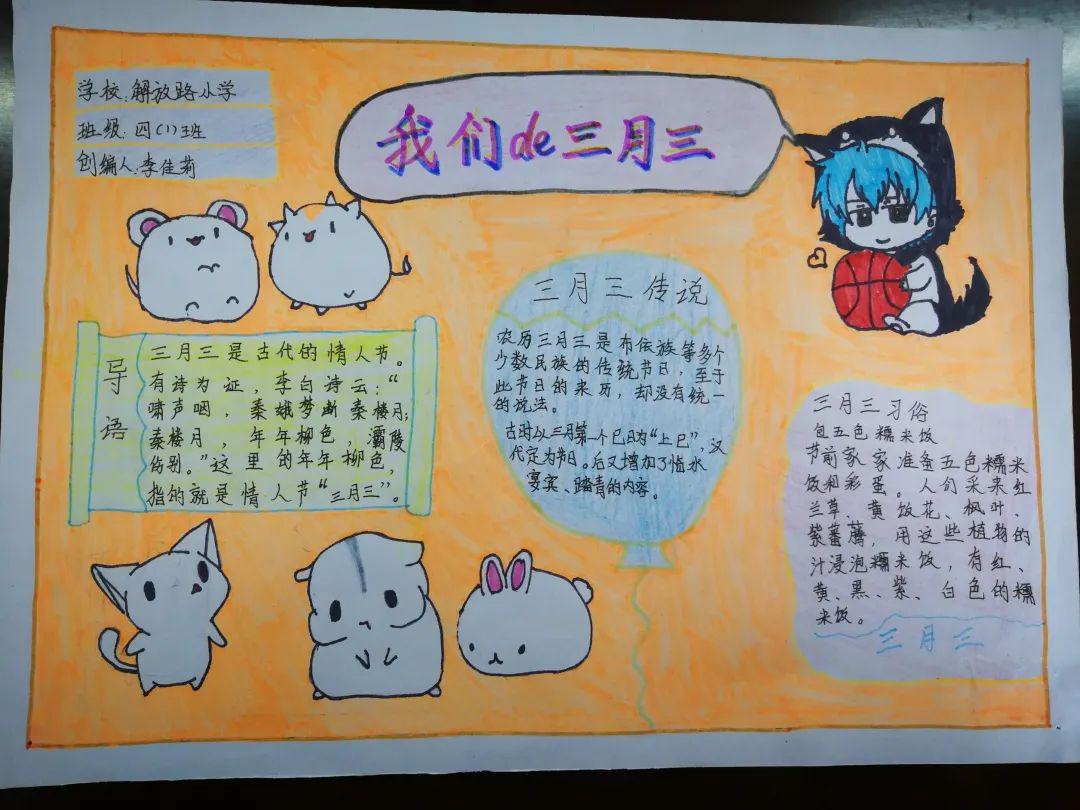 学校:解放路小学
班级:四(1)班
创编人:李佳莉
我们de三月三
导语
三月三是古代的情人节。
有诗为证，李白诗云:“
啸声咽，秦娥梦断秦楼月;
秦楼月，年年柳色，灞陵
伤别。”这里的年年柳色，
指的就是情人节“三月三”。
三月三传说
农历三月三是布依族等多个
少数民族的传统节日，至于
此节日的来历，却没有统一
的说法。
古时以三月第一个巳日为“上巳”，汉
代定为节日。后又增加了临水
宴宾、踏青的内容。
三月三习俗
包五色糯米饭
节前家家准备五色糯米
饭和彩蛋。人们采来红
兰草、黄饭花、枫叶、
紫蕃藤，用这些植物的
汁浸泡糯米饭，有红、
黄、黑、紫、白色的糯
米饭。
三月三